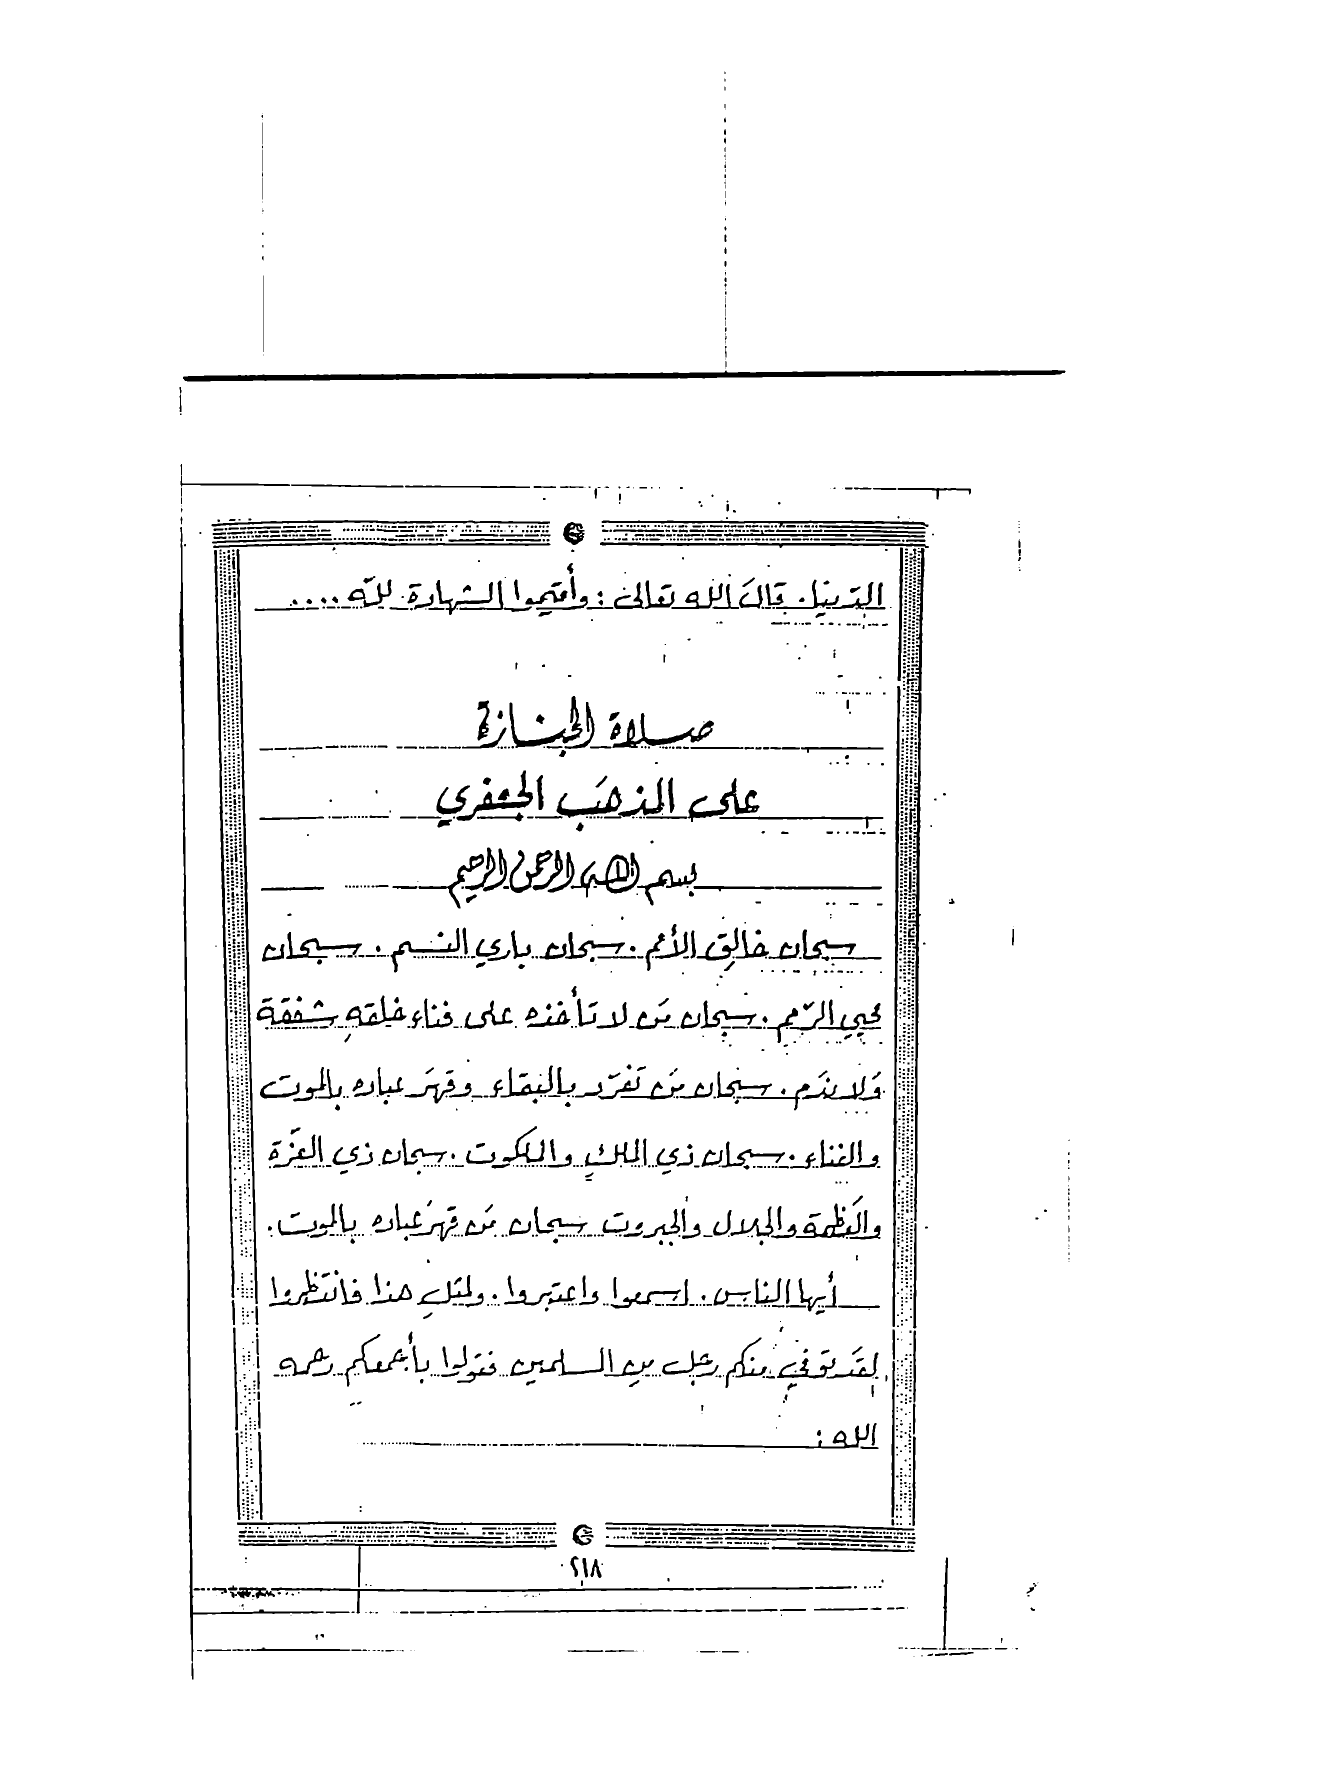 الدّنيا. قالَ الله تعالى : وأقيموا الشهادة لله ....
صلاة الجنازة
على المذهَب الجعفري
بسم الله الرحمن الرحيم
سبحان خالِق الأمم . سبحان باري النسم . سبحان
محيي الرّمم . سبحان مَن لا تأخذه على فناء خلقهِ شفقة
وَلا ندَم . سبحان مَن تفرّد بالبقاء وقهَر عباده بالموت
والفناء . سبحان ذي الملكِ والملكوت . سبحان ذي العزّة
والعَظمة والجلال والجبروت سبحان مَن قهرَ عباده بالموت .
أيها الناس . اسمعوا واعتبروا . ولمثلِ هذا فانتَظروا
لقَد توفيَ منكم رجل مِن المسلمين فقولوا بأجمعكم رحمه
الله :
٢١٨